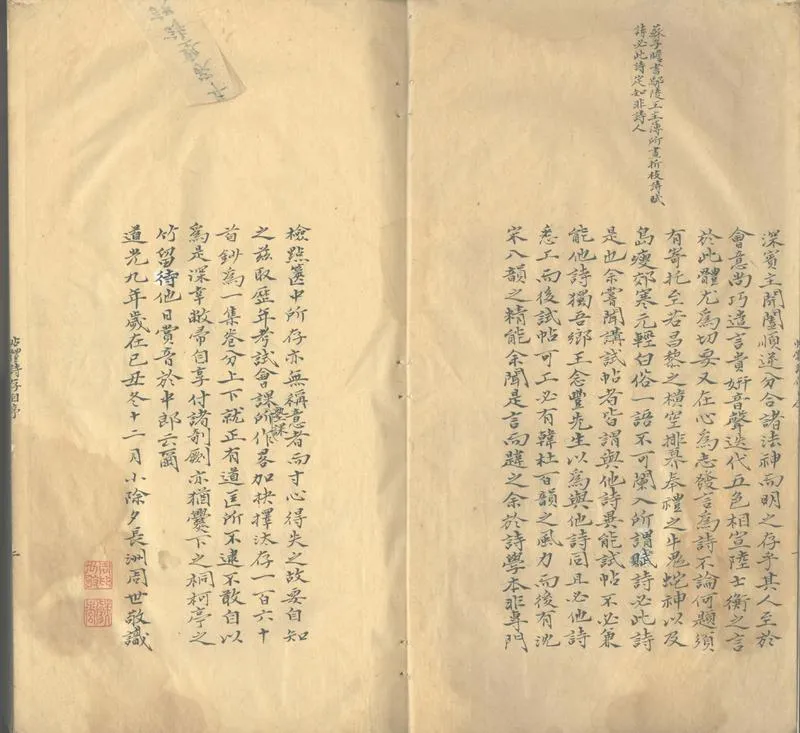 蘇子瞻書鄢陵王主簿所畫折枝詩賦
詩必此詩定知非詩人
深賓主開闔順逆分合諸法神而明之存乎其人至於
會意尚巧遣言貴妍音聲迭代五色相宣陸士衡之言
於此體尤為切要又在心為志發言為詩不論何題須
有寄托至若昌黎之橫空排奡奉禮之牛鬼蛇神以及
島瘦郊寒元輕白俗一語不可闌入所謂賦詩必此詩
是也余嘗聞講試帖者皆謂與他詩異能試帖不必兼
能他詩獨吾鄉王念豐先生以為與他詩同且必他詩
悉工而後試帖可工必有韓杜百韻之風力而後有沈
宋八韻之精能余聞是言而韙之余於詩學本非專門
檢點篋中所存亦無稱意者而寸心得失之故要自知
之茲取歷年考試會課所作畧加抉擇汰存一百六十
首鈔為一集卷分上下就正有道匡所不逮不敢自以
為是深幸敝帚自享付諸剞劂亦猶爨下之桐柯亭之
竹留待他日賞音於中郎云爾
道光九年歲在己丑冬十二月小除夕長洲周世敬識